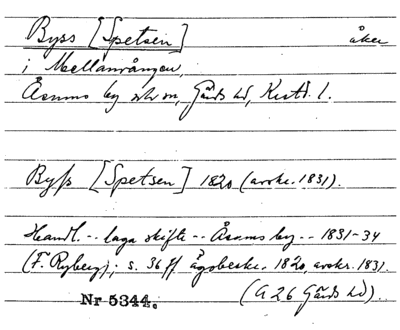 Byss [Spetsen] åker
i Mellanvången,
Åsums by och sn, Gärds hd, Krist. l.
Byſs [Spetsen] 1820 (avskr. 1831).
Handl. -- laga skifte -- Åsums by -- 1831-34
(F. Ryberg); s. 36 ff ägobeskr. 1820, avskr. 1831.
(A 26 Gärds hd).
Nr 5344.